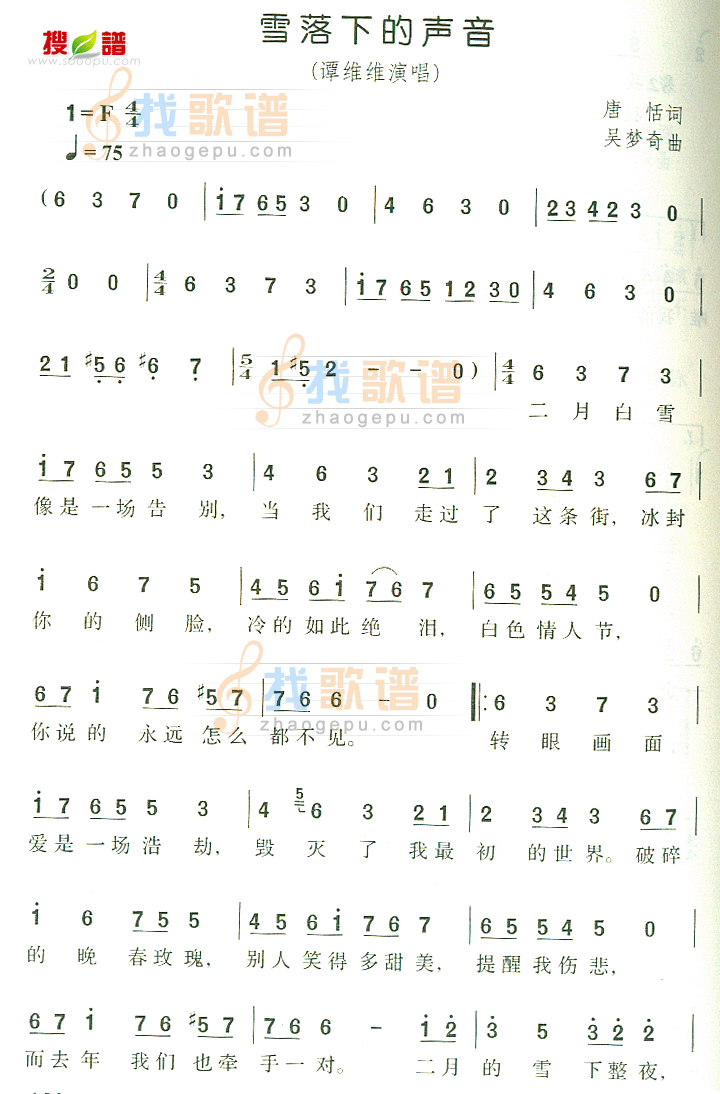 搜谱
www.sooopu.com
雪落下的声音
(谭维维演唱)
1=F 4/4
♩=75
唐 恬 词
吴梦奇 曲
找歌谱
zhaogepu.com
(6 3 7 0 | i 7 6 5 3 0 | 4 6 3 0 | 2 3 4 2 3 0 |
2/4 0 0 | 4/4 6 3 7 3 | i 7 6 5 1 2 3 0 | 4 6 3 0 |
2 1 #5 6 #6 7 | 5/4 1 #5 2 - - 0) | 4/4 6 3 7 3 |
找歌谱
zhaogepu.com
二 月 白 雪
i 7 6 5 5 3 | 4 6 3 2 1 | 2 3 4 3 6 7 |
像是一场告 别, 当 我 们 走过 了 这条 街, 冰封
i 6 7 5 | 4 5 6 i 7 6 7 | 6 5 5 4 5 0 |
你 的 侧 脸, 冷的如此绝 泪, 白色情人节,
6 7 i 7 6 #5 7 | 7 6 6 - 0 |: 6 3 7 3 |
找歌谱
zhaogepu.com
你说的 永远 怎么 都不见。 转 眼 画 面
i 7 6 5 5 3 | 4 5 6 3 2 1 | 2 3 4 3 6 7 |
爱是一场浩 劫, 毁 灭 了 我最 初 的世 界。破碎
i 6 7 5 5 | 4 5 6 i 7 6 7 | 6 5 5 4 5 0 |
的 晚 春玫瑰, 别人笑得多甜美, 提醒我伤悲,
6 7 i 7 6 #5 7 | 7 6 6 - i 2 | 3 5 3 2 2 |
而去年 我们 也牵 手一对。 二月 的 雪 下整夜,